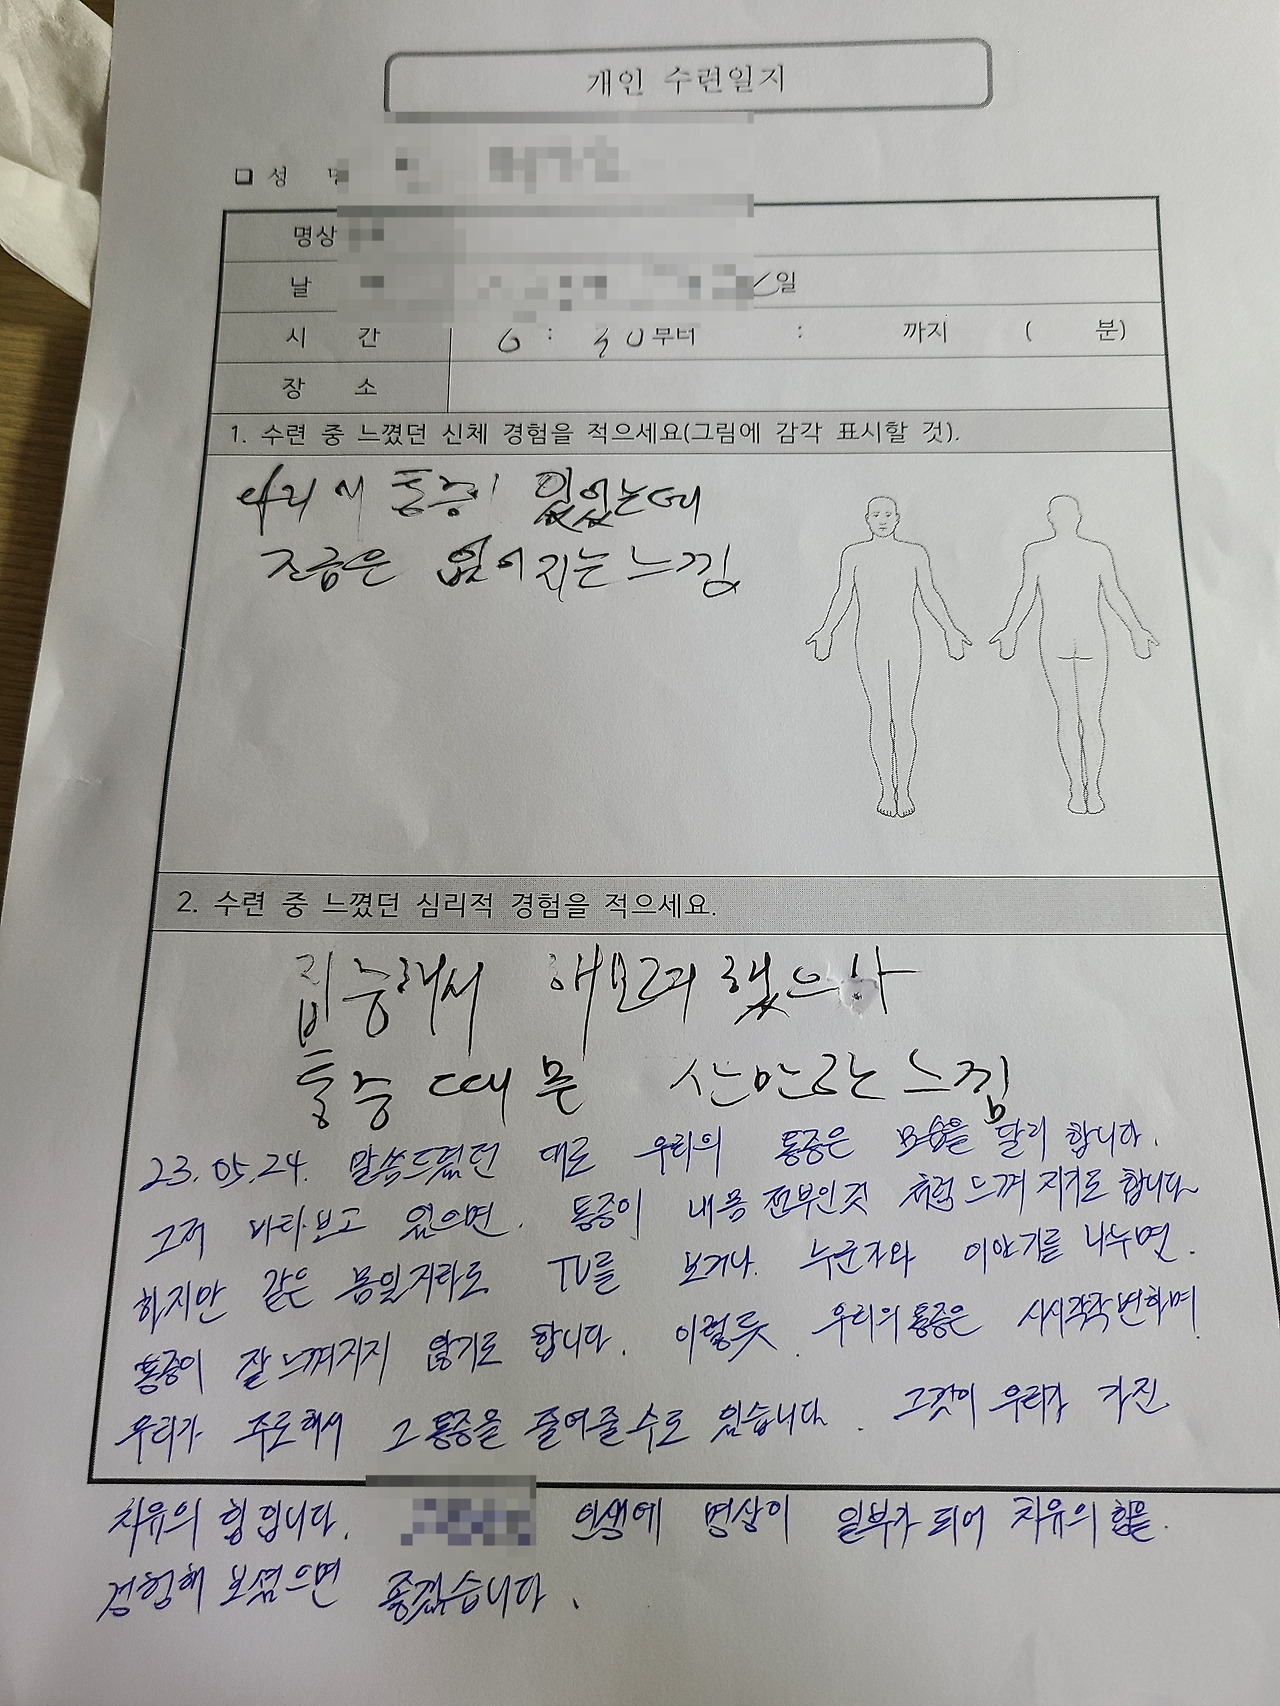 개인 수련일지
□ 성
명상
날 일
시 간 6 : 30 부터 : 까지 ( 분)
장 소
1. 수련 중 느꼈던 신체 경험을 적으세요(그림에 감각 표시할 것).
통증이 있었는데
조금은 없어지는 느낌
2. 수련 중 느꼈던 심리적 경험을 적으세요.
집중해서 해보려 했으나
통증 때문 산만한 느낌
23.05.24. 말씀드렸던 대로 우리의 통증은 모습을 달리 합니다.
그저 바라보고 있으면. 통증이 내 몸 전부인것 처럼 느껴 지기도 합니다
하지만 같은 몸일지라도 TV를 보거나. 누군가와 이야기를 나누면.
통증이 잘 느껴지지 않기도 합니다. 이렇듯. 우리의 통증은 시시각각 변하며
우리가 주도해서 그 통증을 줄여줄 수도 있습니다. 그것이 우리가 가진
치유의 힘입니다. 인생에 명상이 일부가 되어 치유의 힘을.
경험해 보셨으면 좋겠습니다.